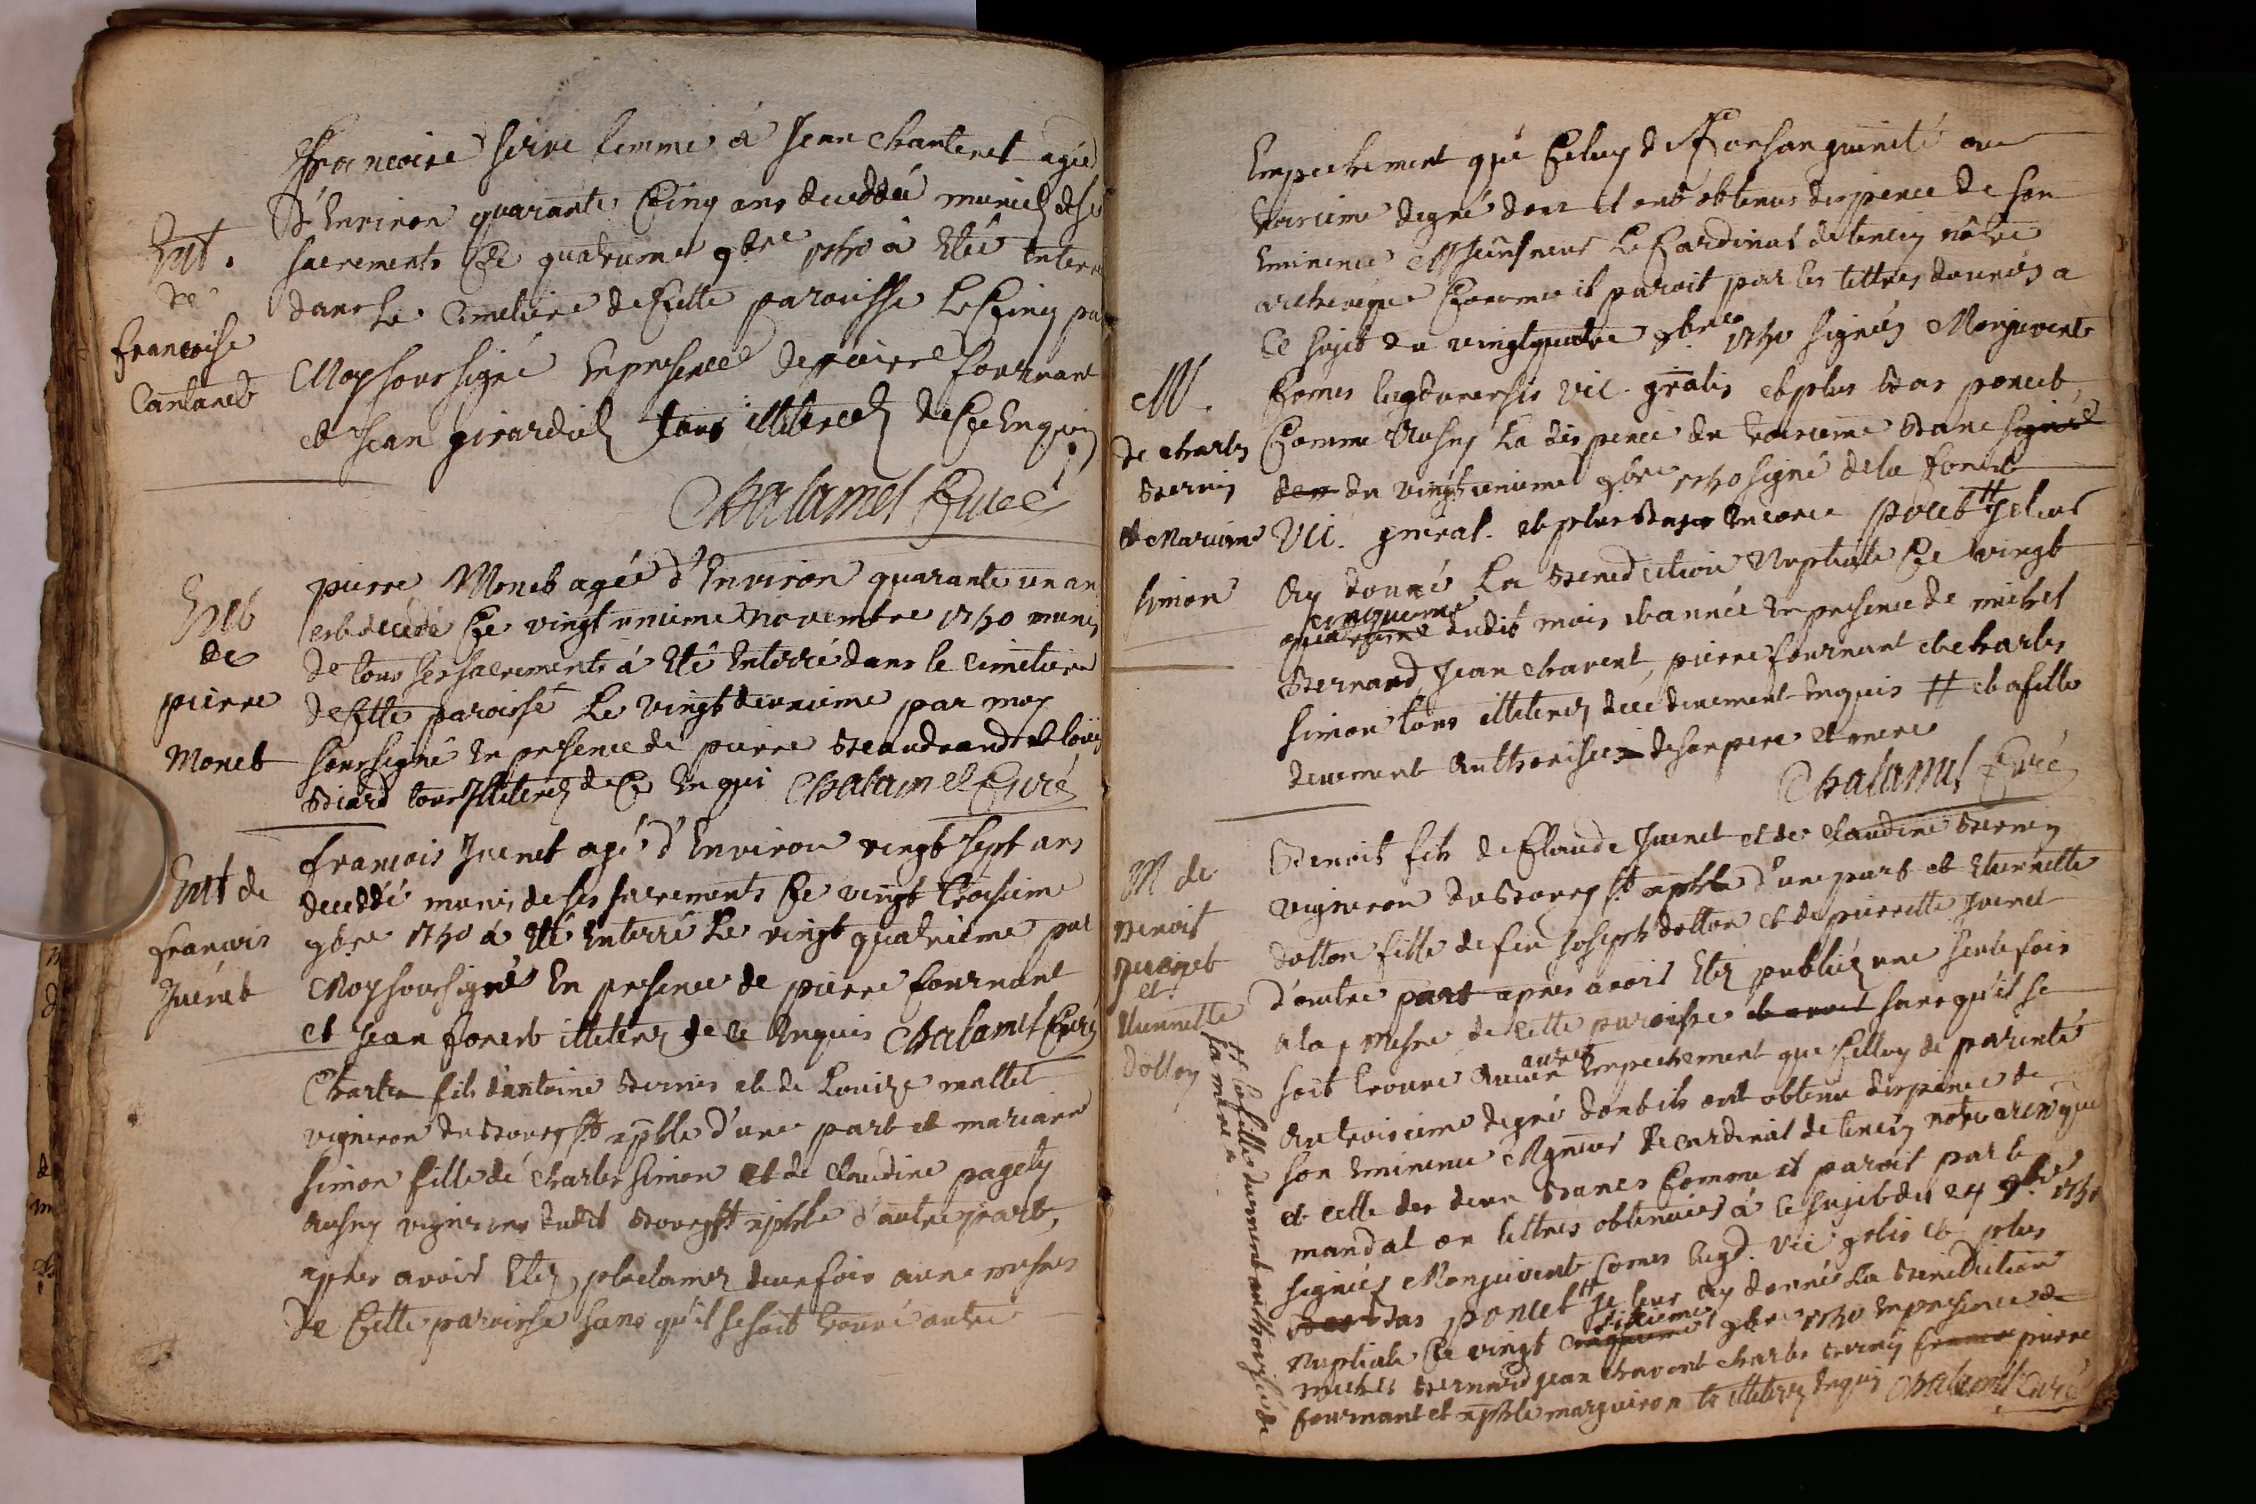 Francoise serve femme à Jean Chantenet agée
d'Environ quarante Cinq ans decedée munie de ses
sacrements Ce quatrieme 9bre 1750 à Eté Enterrée
dans le Cimetiere de Cette paroisse Le Cinq par
Moy soussigné En presence de pierre fournant
et Jean girardet tous illiterez de Ce Enquis
Chalamel Curé
Ent.
de
francoise
Cantanet
pierre Monet agée d'Environ quarante un an
est decedé Ce vingt unieme Novembre 1750 munis
de tous ses sacrements à Eté Enterré dans le cimetiere
de Cette paroisse Le vingt deuxieme par moy
soussigné En presence de pierre Beaudrand et Louis
Biard tous Illiterez de Ce Enqui Chalamel Curé
Ent
de
pierre
Monet
francois Juenet agé d'Environ vingt sept ans
decedé munis de ses sacrements Ce vingt troisieme
9bre 1750 à Eté Enterré Le vingt quatrieme par
Moy soussigné En presence de pierre fournant
et Jean foret illiterez de ce Enquis Chalamel Curé
Ent de
francois
Juenet
Charle fils d'antoine Bernin et de Louize mallet
vigneron du Bourg St aple d'une part et mariane
simon fille de Charles simon et de Claudine pagety
Aussy vignerons dudit Bourg St aple d'autre part,
apres avoir Etez proclamez deux fois aux messes
de Cette paroisse sans qu'il se soit trouvé autre
Empechement que Celuy de Consanguinité au
troisieme degré dont il ont obtenus dispence de son
Eminence Mseigneur Le Cardinal detencin nôtre
archeveque Comme il paroit par les lettres données a
Ce sujet du vingtquatre 9bre 1750 signées Monjuvent
Comes lugdunensis vic. gnalis et plus bas poncet
Comme Aussy La dispence du troisieme Banc signée
du vingtunieme 9bre 1750 signé de la font
Vic. general. et plus Bas Encore poncet # Je leur
Ay donné La Benediction Nuptiale Ce vingt
cinquieme
quatrieme dudit mois et année En presence de michel
Bernard Jean Chavent, pierre fournant et charles
simon tous illiterez de ce duement Enquis # et a fille
duement Authorisée de son pere et mere
Chalamel Curé
M.
de charles
Bernin
et Mariane
simon
Benoit fils de Claude Juenet et de Claudine Bernin
vigneron du Bourg St aple d'une part et Etiennette
dollon fille de feu Joseph dollon et de pierrette Juenet
d'autre part apres avoir Etez publiez une seule fois
a la messe de cette paroisse et avoit sans qu'il se
soit trouvé Aucun autre Empechement que Celluy de parenté
Au troisieme degré dont ils ont obtenu dispence de
son Eminence Mgneur Le cardinal de tencin notre archeveque
et celle des deux Bancs Comme il paroit par le
mandat ou lettres obtenues à ce sujet du 24 9bre 1750
signées Monjuvent Comes lugd. vic. gnlis et plus
Bas poncet # Je leur Ay donné La Benediction
Nuptiale Ce vingt cinquieme sixieme 9bre 1750 En presence de
michel Bernard Jean Chavent charles Bernin france pierre
fournant et aple marguiron ts illiterez Enquis Chalamel Curé
M de
Benoit
Juenet
et
Etiennette
dollon
# la fille duement authorisée de
sa mere #